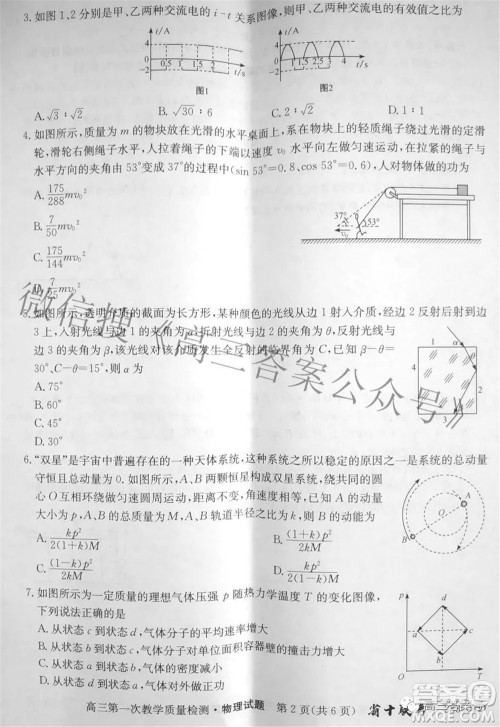 3. 如图1、2分别是甲、乙两种交流电的i-t关系图像,则甲、乙两种交流电的有效值之比为
i/A
4
2
0
-2
0.5 1 1.5 2
t/s
图1
i/A
4
2
0
-2
1 2 3 4
t/s
图2
A.√3∶√2
B.√30∶6
C.2∶√2
D.1∶1
4. 如图所示,质量为m的物块放在光滑的水平桌面上,系在物块上的轻质绳子绕过光滑的定滑
轮,滑轮右侧绳子水平,人拉着绳子的下端以速度v₀水平向左做匀速运动,在绳子与
水平方向的夹角由53°变成37°的过程中(sin 53°=0.8、cos 53°=0.6),人对物体做的功为
A. 175/288 mv₀²
B. 7/50 mv₀²
C. 175/144 mv₀²
D. 7/50
37°
53°
v₀
5. 如图所示,透明介质的截面为长方形,某种颜色的光线从边1射入介质,经边2反射后射到边
3上,入射光线与边1的夹角为α,折射光线与边2的夹角为θ,反射光线与
边3的夹角为β,该光线对该介质发生全反射的临界角为C,已知β-θ=
30°、C-θ=15°,则α为
A.75°
B.60°
C.45°
D.30°
1
4
6. “双星”是宇宙中普遍存在的一种天体系统,这种系统之所以稳定的原因之一是系统的总动量
守恒且总动量为0,如图所示,A、B两颗恒星构成双星系统,绕共同的圆
心O互相环绕做匀速圆周运动,距离不变角速度相等,已知A的动量
大小为p,A、B的总质量为M,A、B轨道半径之比为k,则B的动能为
A. kp²/2(1+k)M
B. (1+k)p²/2kM
C. p²/2kM
D. kp²/2M
A
O
B
7. 如图所示为一定质量的理想气体压强p随热力学温度T的变化图像,
下列说法正确的是
A.从状态c到状态d,气体分子的平均速率增大
B.从状态d到状态a,气体分子的密集程度增大
C.从状态a到状态b,气体的内能减小
D.从状态b到状态c,气体对外界做功
p
b
a
c
d
O
T
高三第一次教学质量检测·物理试题 第2页(共6页) 省十联考
微信搜《高三答案公众号》